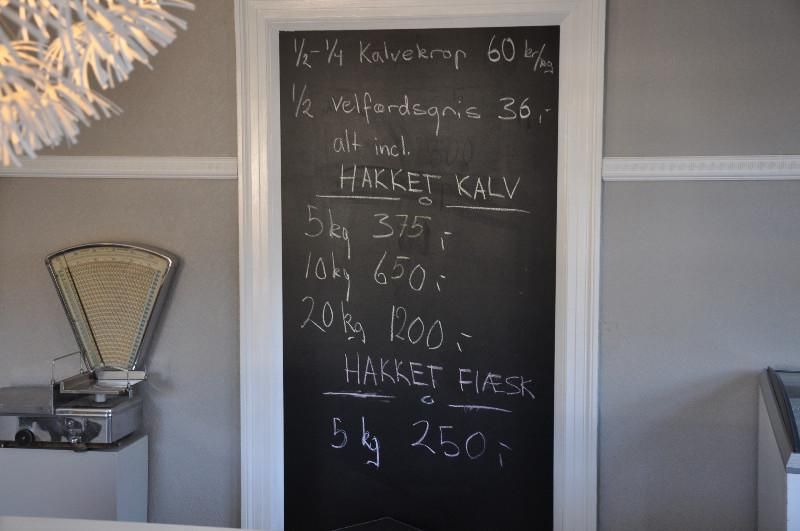 1/2-1/4 Kalvekrop 60 kr/kg
1/2 velfærdsgris 36,-
alt incl.
HAKKET KALV
5 kg 375,-
10 kg 650,-
20 kg 1200,-
HAKKET FLÆSK
5 kg 250,-